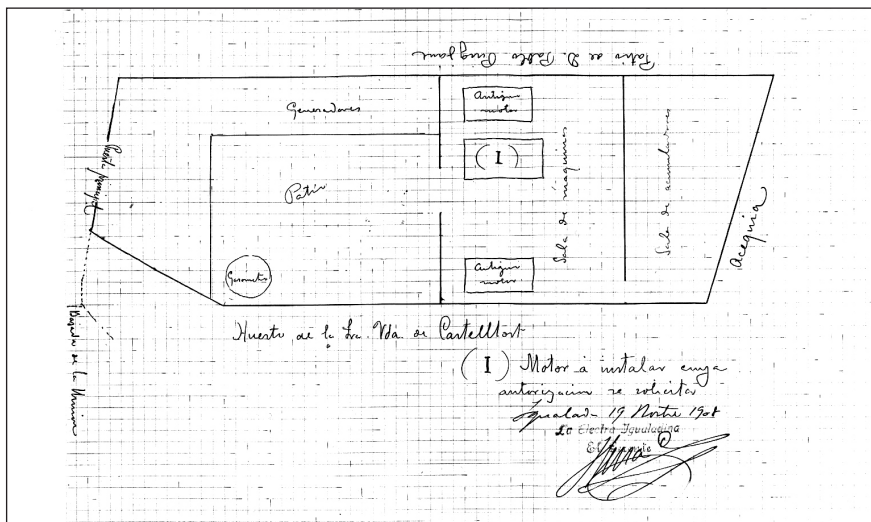 Patio de D. Pablo Puigjaner
Generadores
Antiguo
motor
(I)
Patio
Sala de maquines
Sala de acumuladores
Acequia
Gasometro
Antiguo
motor
Bajada de la Union
Huerto de la Sra. Vda. de Castelltort
(I) Motor a instalar cuya
autorizacion se solicita
Igualada 19 Novbre 1908
La Electra Igualadina
El Gerente